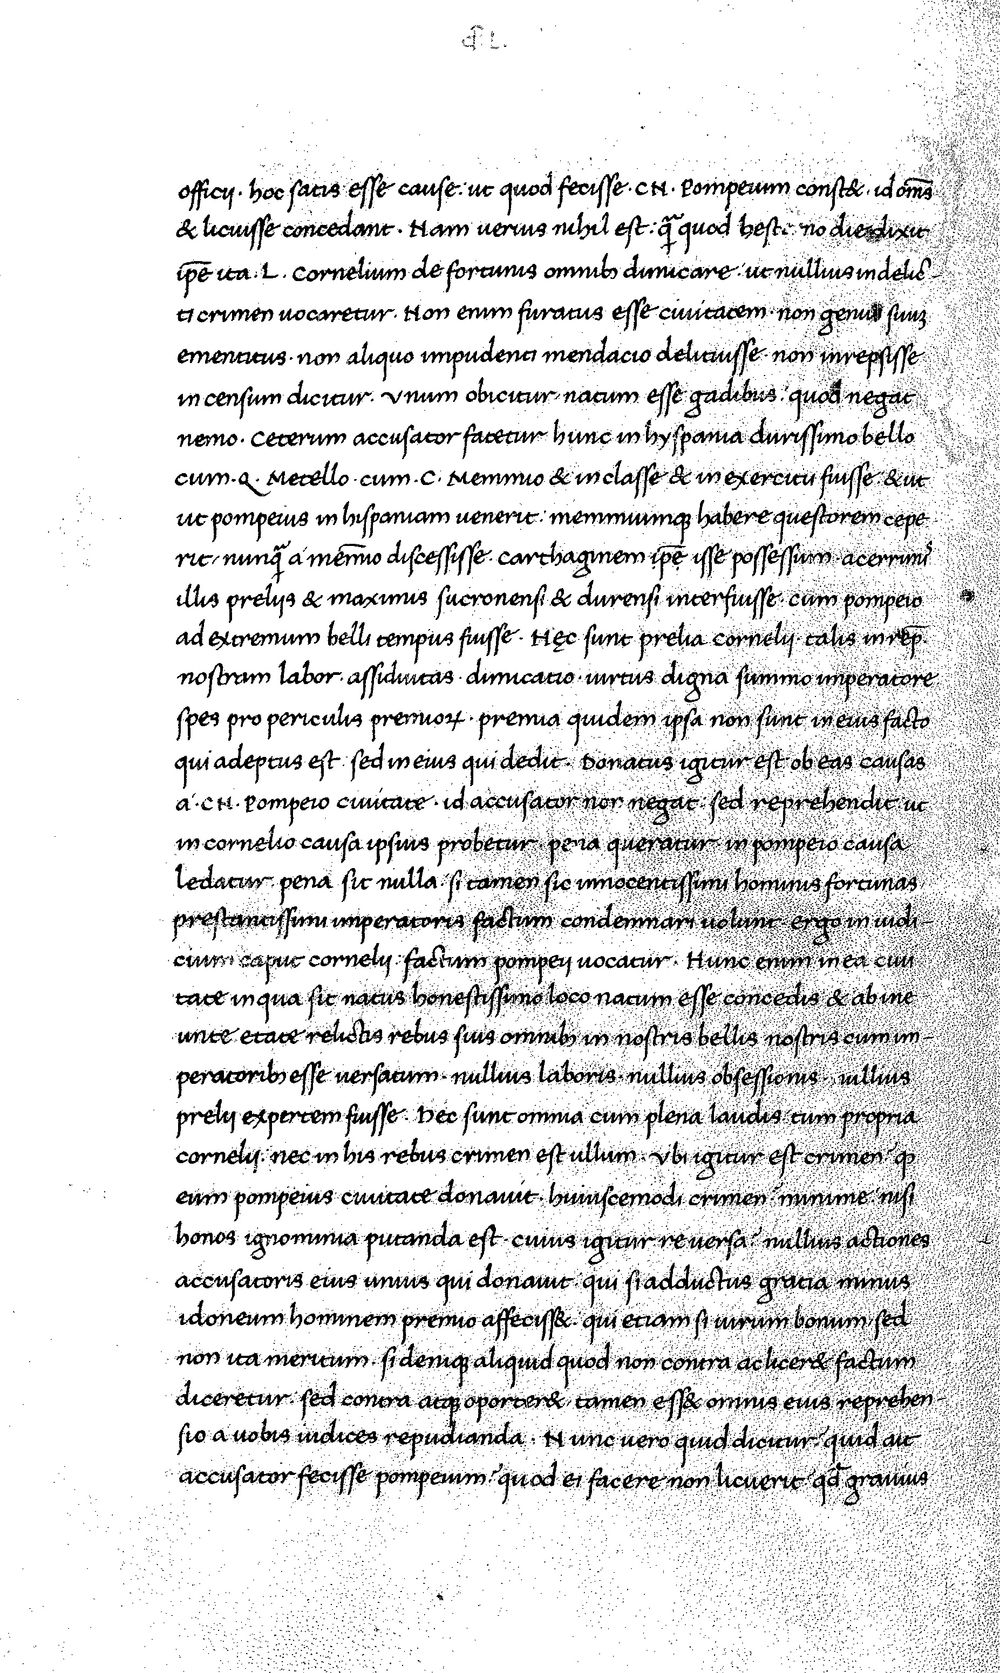 officij · hoc satis esse cause · ut quod fecisse · CN · Pompeium const& · id om̅s
& licuisse concedant · Nam uerius nihil est · q̃ quod hest · no die dixit
ip̅e ita · L · Cornelium de fortunis omnib; dimicare · ut nullius in delic-
ti crimen uocaretur · Non enim furatus esse ciuitatem · non genus suuȝ
ementitus · non aliquo impudenti mendacio delituisse · non inrepsisse
in censum dicitur · Vnum obicitur · natum esse gadibus · quod negat
nemo · Ceterum accusator fatetur hunc in hyspania durissimo bello
cum · Q · Metello · cum · C · Memmio & in classe & in exercitu fuisse · & ut
ut pompeius in hispaniam uenerit · memmiumq; habere questorem cepe
rit · nunq̃ a mem̅io discessisse · carthaginem ip̅e isse possessum · acerrimi᷒
illis prelijs & maximis sucronensi & durensi interfuisse · cum pompeio
ad extremum belli tempus fuisse · Hęc sunt prelia cornelij · talis in rep̅ ·
nostram labor · assiduitas · dimicatio · uirtus digna summo imperatore
spes pro periculis premioꝝ · premia quidem ipsa non sunt in eius facto
qui adeptus est · sed in eius qui dedit · Donatus igitur est ob eas causas
a · CN · Pompeio ciuitate · id accusator non negat · sed reprehendit ut
in cornelio causa ipsius probetur · pena queratur · in pompeio causa
ledatur · pena sit nulla · si tamen sic innocentissimi hominis fortunas
prestantissimi imperatoris factum condemnari uolunt · ergo in iudi-
cium caput cornelij · factum pompeij uocatur · Hunc enim in ea ciui
tate in qua sit natus honestissimo loco natum esse concedis & ab ine
unte etate relictis rebus suis omnib; in nostris bellis nostris cum im-
peratorib; esse uersatum · nullius laboris · nullius obsessionis · nullius
prelij expertem fuisse · Hec sunt omnia cum plena laudis tum propria
cornelij · nec in his rebus crimen est ullum · Vbi igitur est crimen? ꝙ
eum pompeius ciuitate donauit · huiuscemodi crimen? minime · nisi
honos ignominia putanda est · cuius igitur re uersa? nullius actiones
accusatoris eius unius qui donauit · qui si adductus gratia minus
idoneum hominem premio affeciss& · qui etiam si uirum bonum · sed
non ita meritum · si deniq; aliquid quod non contra ac licer& factum
diceretur · sed contra atq; oporter& · tamen ess& omnis eius reprehen-
sio a uobis iudices repudianda · Nunc uero quid dicitur? quid ait
accusator fecisse pompeium? quod ei facere non licuerit qd̃ grauius